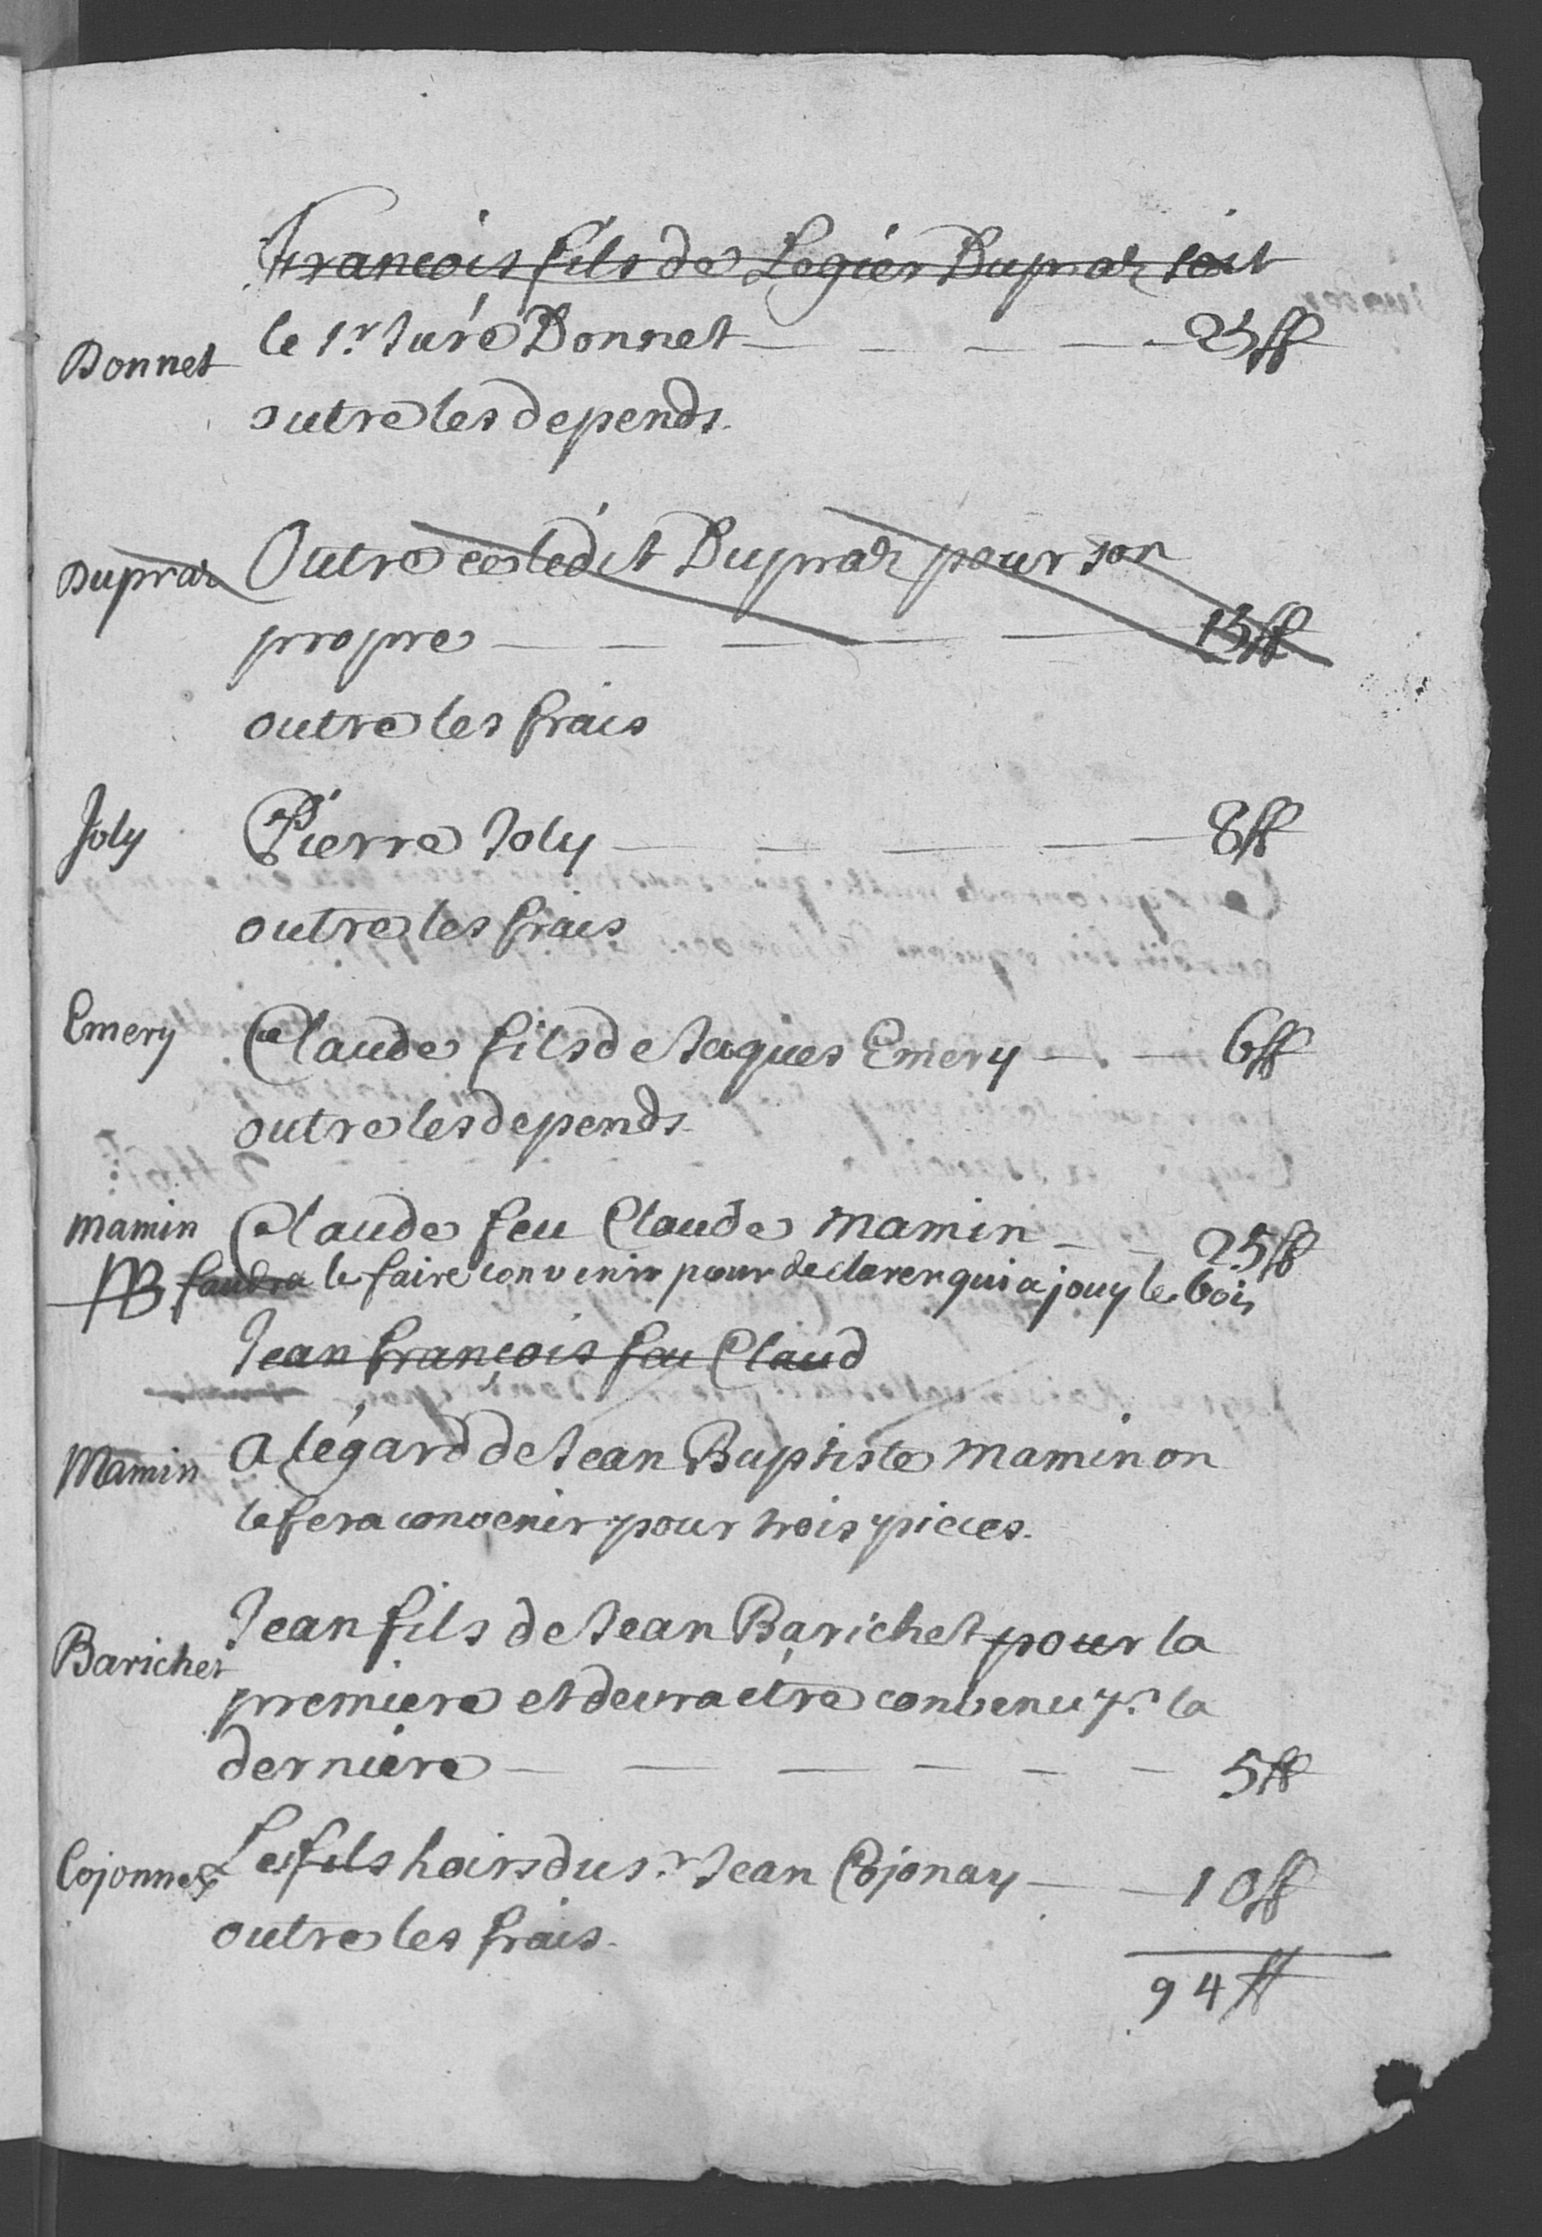 François fils de Legier Dupraz soit
Donnet le Sr. Juré Donnet 25 ff
outre les depends.
Dupraz Outre ce ledit Dupraz pour son
propre 15 ff
outre les frais
Joly Pierre Joly 8 ff
outre les frais
Emery Claude fils de Jaques Emery 6 ff
outre les depends
Mamin Claude feu Claude Mamin 25 ff
NB faudra le faire convenir pour declarer qui a jouy le bois
Jean françois feu Claud
Mamin a légard de Jean Baptiste Mamin on
le fera convenir pour trois pieces.
Barichet Jean fils de Jean Barichet pour la
premiere et devra etre convenu pr. la
derniere 5 ff
Cojonnex Les fils hoirs du Sr. Jean Cojonay 10 ff
outre les frais.
94 ff